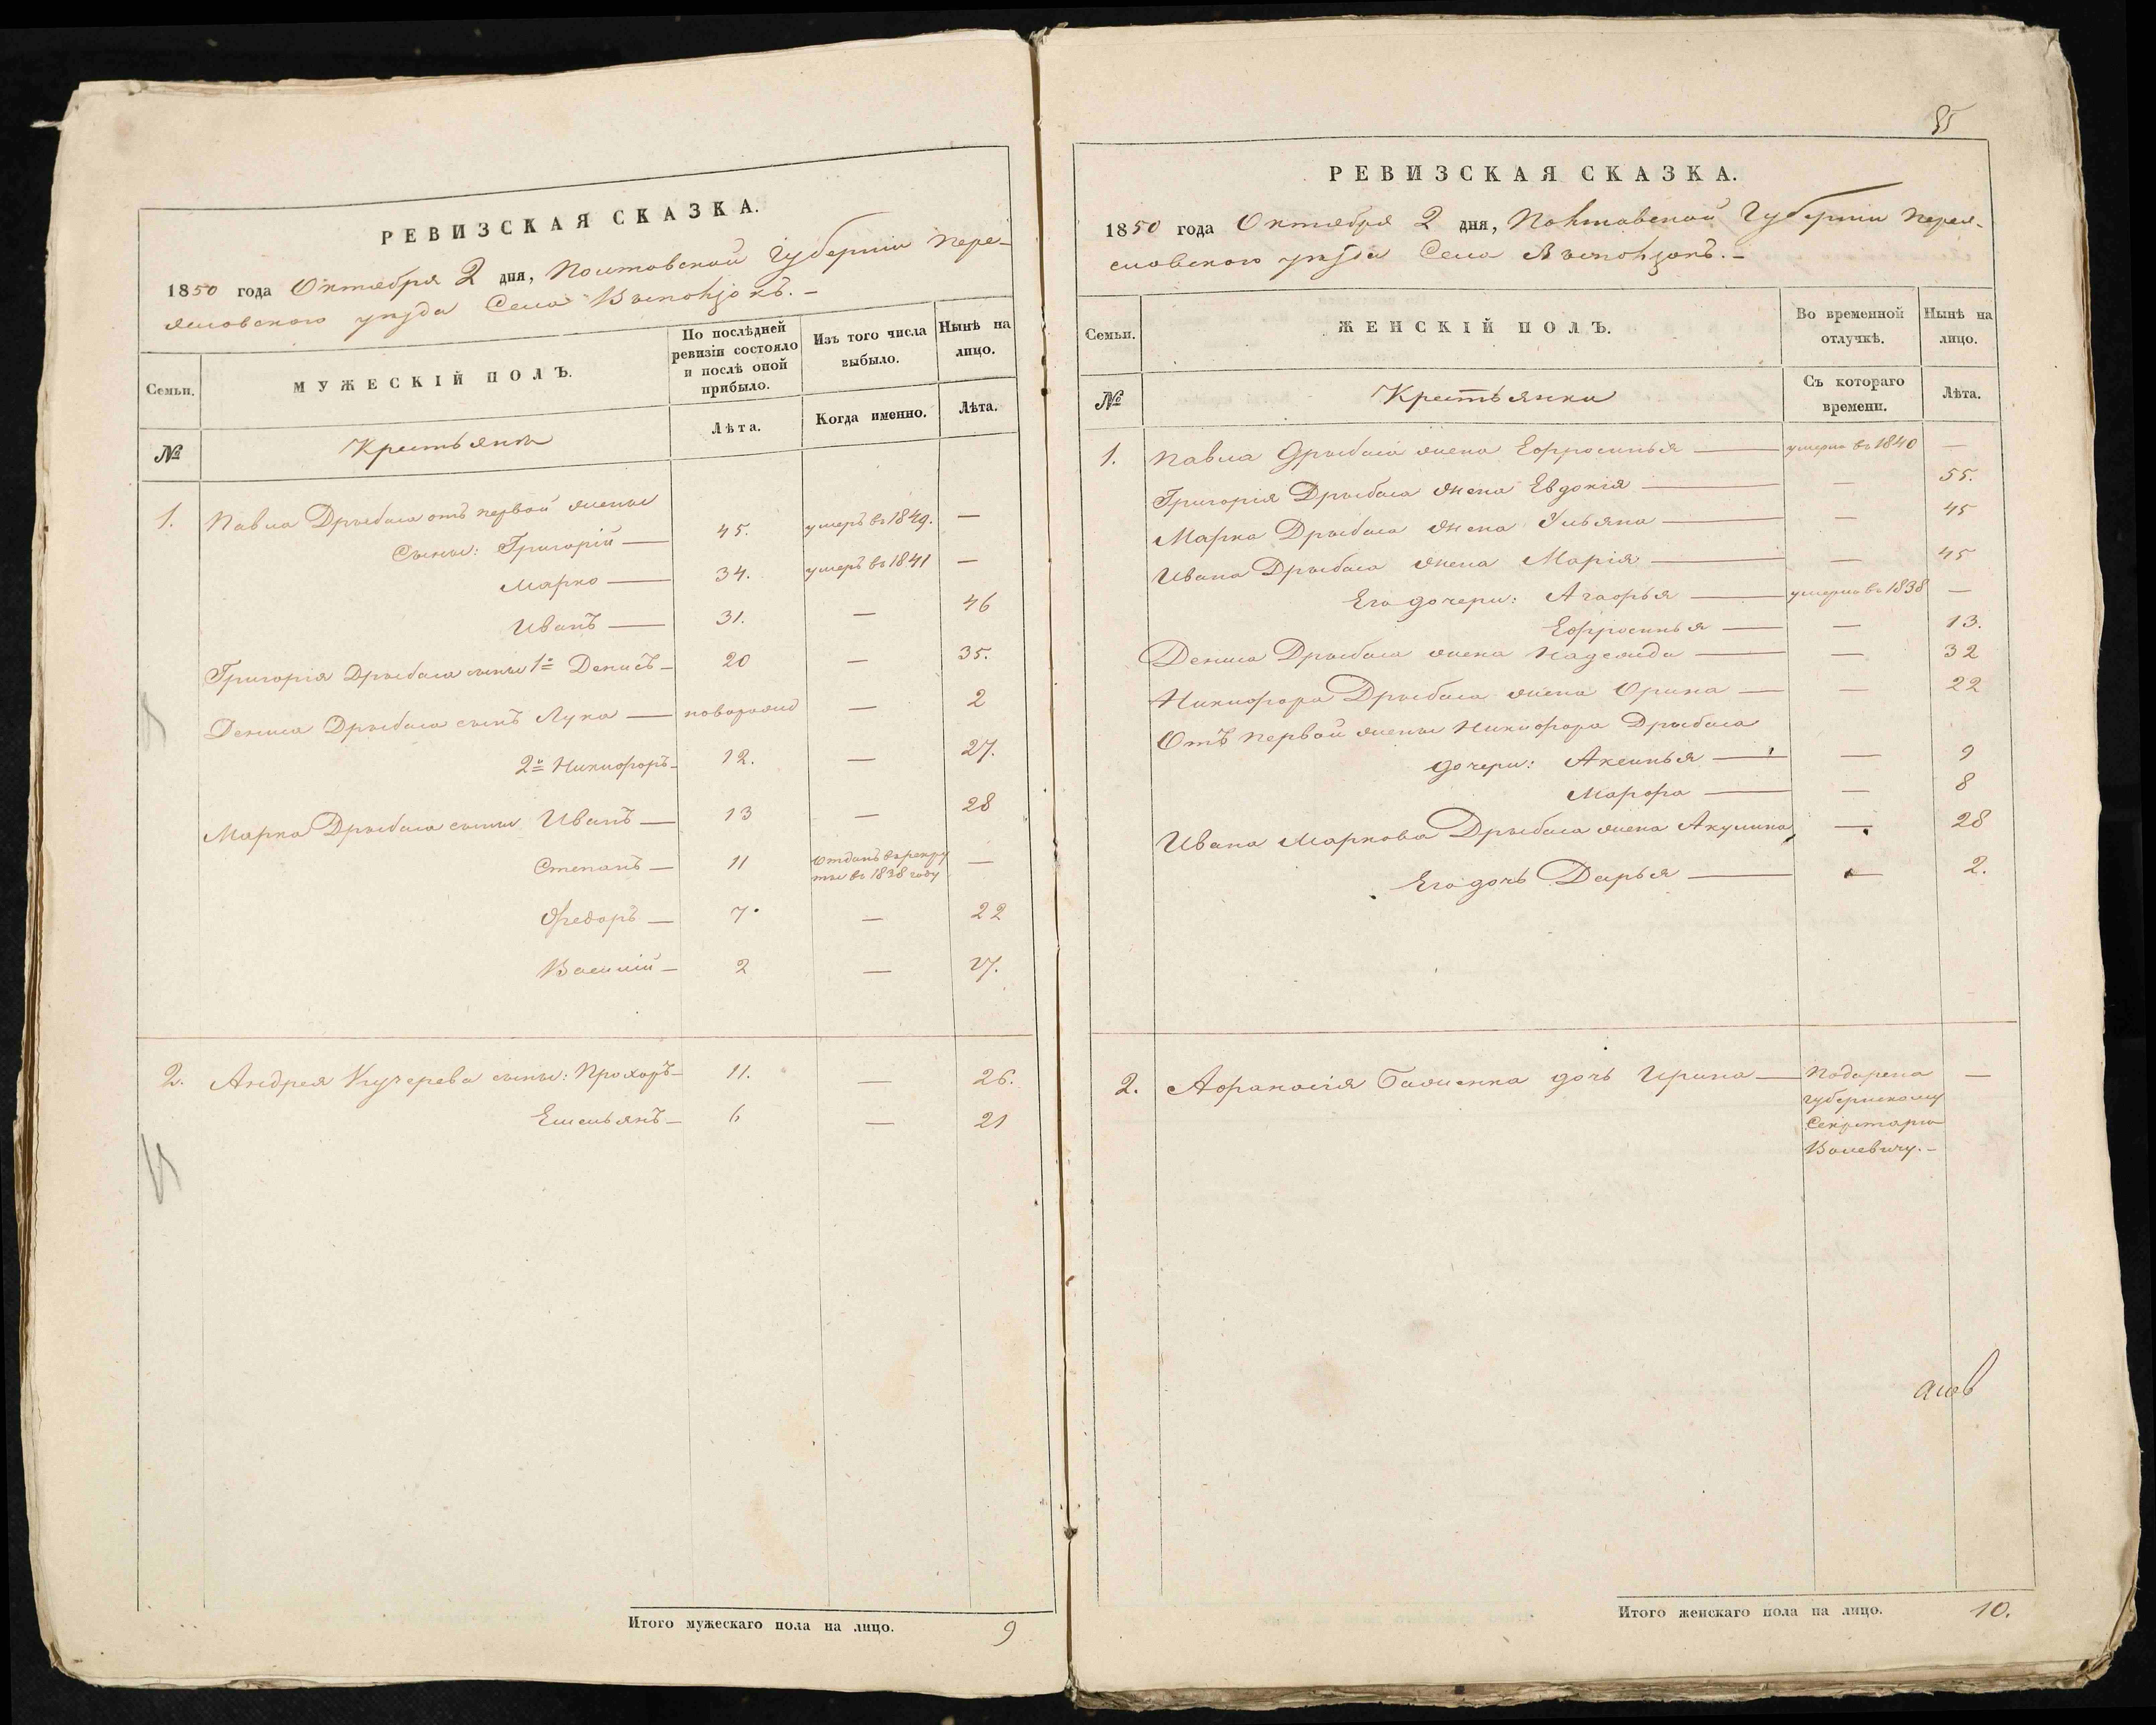 РЕВИЗСКАЯ СКАЗКА.
1850 года Октября 2 дня, Полтавской Губернiи Пере-
яславского уѣзда Села Выползокъ.-
Семьи.
МУЖЕСКІЙ ПОЛЪ.
По послѣдней ревизіи состояло и послѣ оной прибыло.
Изъ того числа выбыло.
Нынѣ на лицо.
№
Крестьяни
Лѣта.
Когда именно.
Лѣта.
1. Павла Дрыбаса отъ первой жены
Сыны: Григорій — 45. умеръ въ 1849. —
Марко — 34. умеръ въ 1841 —
Иванъ — 31. — 46
Григорія Дрыбаса сыны 1й Денисъ — 20 — 35.
Дениса Дрыбаса сынъ Лука — новорожд — 2
2й Никифоръ — 12. — 27.
Марка Дрыбаса сыны Иванъ — 13 — 28
Степанъ — 11 Отданъ въ рекру
ты въ 1838 году —
Федоръ — 7. — 22
Василій — 2 — 17.
2. Андрея Кучерева сыны: Прохоръ — 11. — 26.
Емельянъ — 6 — 21
Итого мужескаго пола на лицо. 9
85
РЕВИЗСКАЯ СКАЗКА.
1850 года Октября 2 дня, Полтавской Губернiи Перея-
славского уѣзда Села Выползокъ.-
Семьи.
ЖЕНСКІЙ ПОЛЪ.
Во временной отлучкѣ.
Нынѣ на лицо.
№
Крестьянки
Съ котораго времени.
Лѣта.
1. Павла Дрыбаса жена Ефросинья — умерла въ 1840 —
Григорія Дрыбаса жена Евдокія — — 55.
Марка Дрыбаса жена Ульяна — — 45
Ивана Дрыбаса жена Марія — — 45
Его дочери: Агафья — умерла въ 1838 —
Ефросинья — — 13.
Дениса Дрыбаса жена Надежда — — 32
Никифора Дрыбаса жена Орина — — 22
Отъ первой жены Никифора Дрыбаса
дочери: Аксинья — — 9
Марфа — — 8
Ивана Маркова Дрыбаса жена Акулина — 28
Его дочь Дарья — — 2.
2. Афанасія Гаженка дочь Ирина — Подарена —
Губернскому
Секретарю
Итого женскаго пола на лицо. 10.